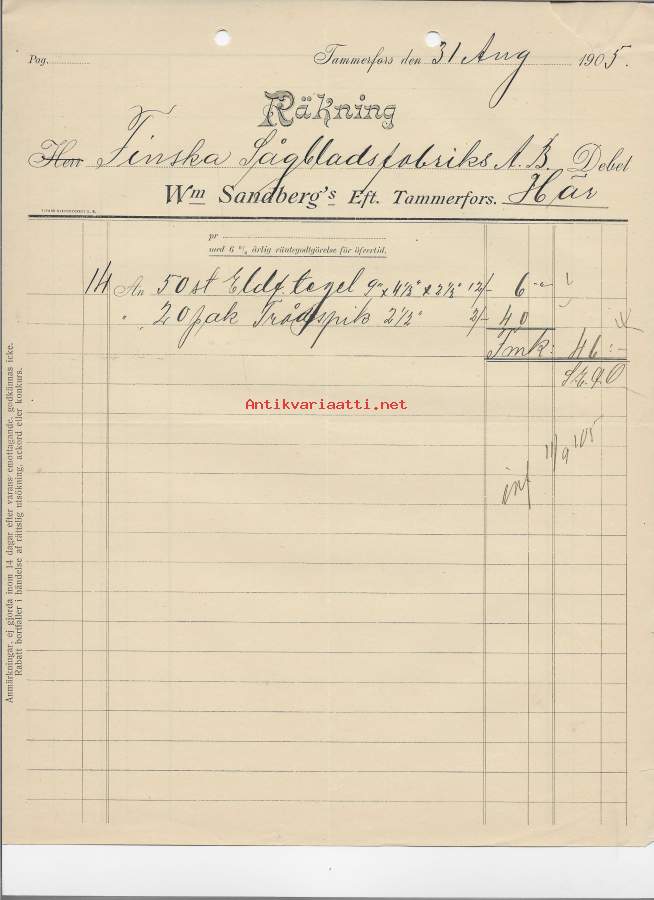 Pag.
Tammerfors den 31 Aug 1905.
Räkning
Herr Finska Sågbladsfabriks A. B. Debet
Wm Sandberg's Eft. Tammerfors. Här
pr
med 6 % årlig räntegodtgörelse för öfvertid.
14 An 50 st Eldf. tegel 9" x 4½" x 2½" 12/- 6 -"-
" 20 pak Trådspik 2½" 2/- 40
Fmk: 46:-
Antikvariaatti.net
11/9 105
Anmärkningar, ej gjorda inom 14 dagar efter varans emottagande, godkännas icke.
Rabatt bortfaller i händelse af rättslig utsökning, ackord eller konkurs.